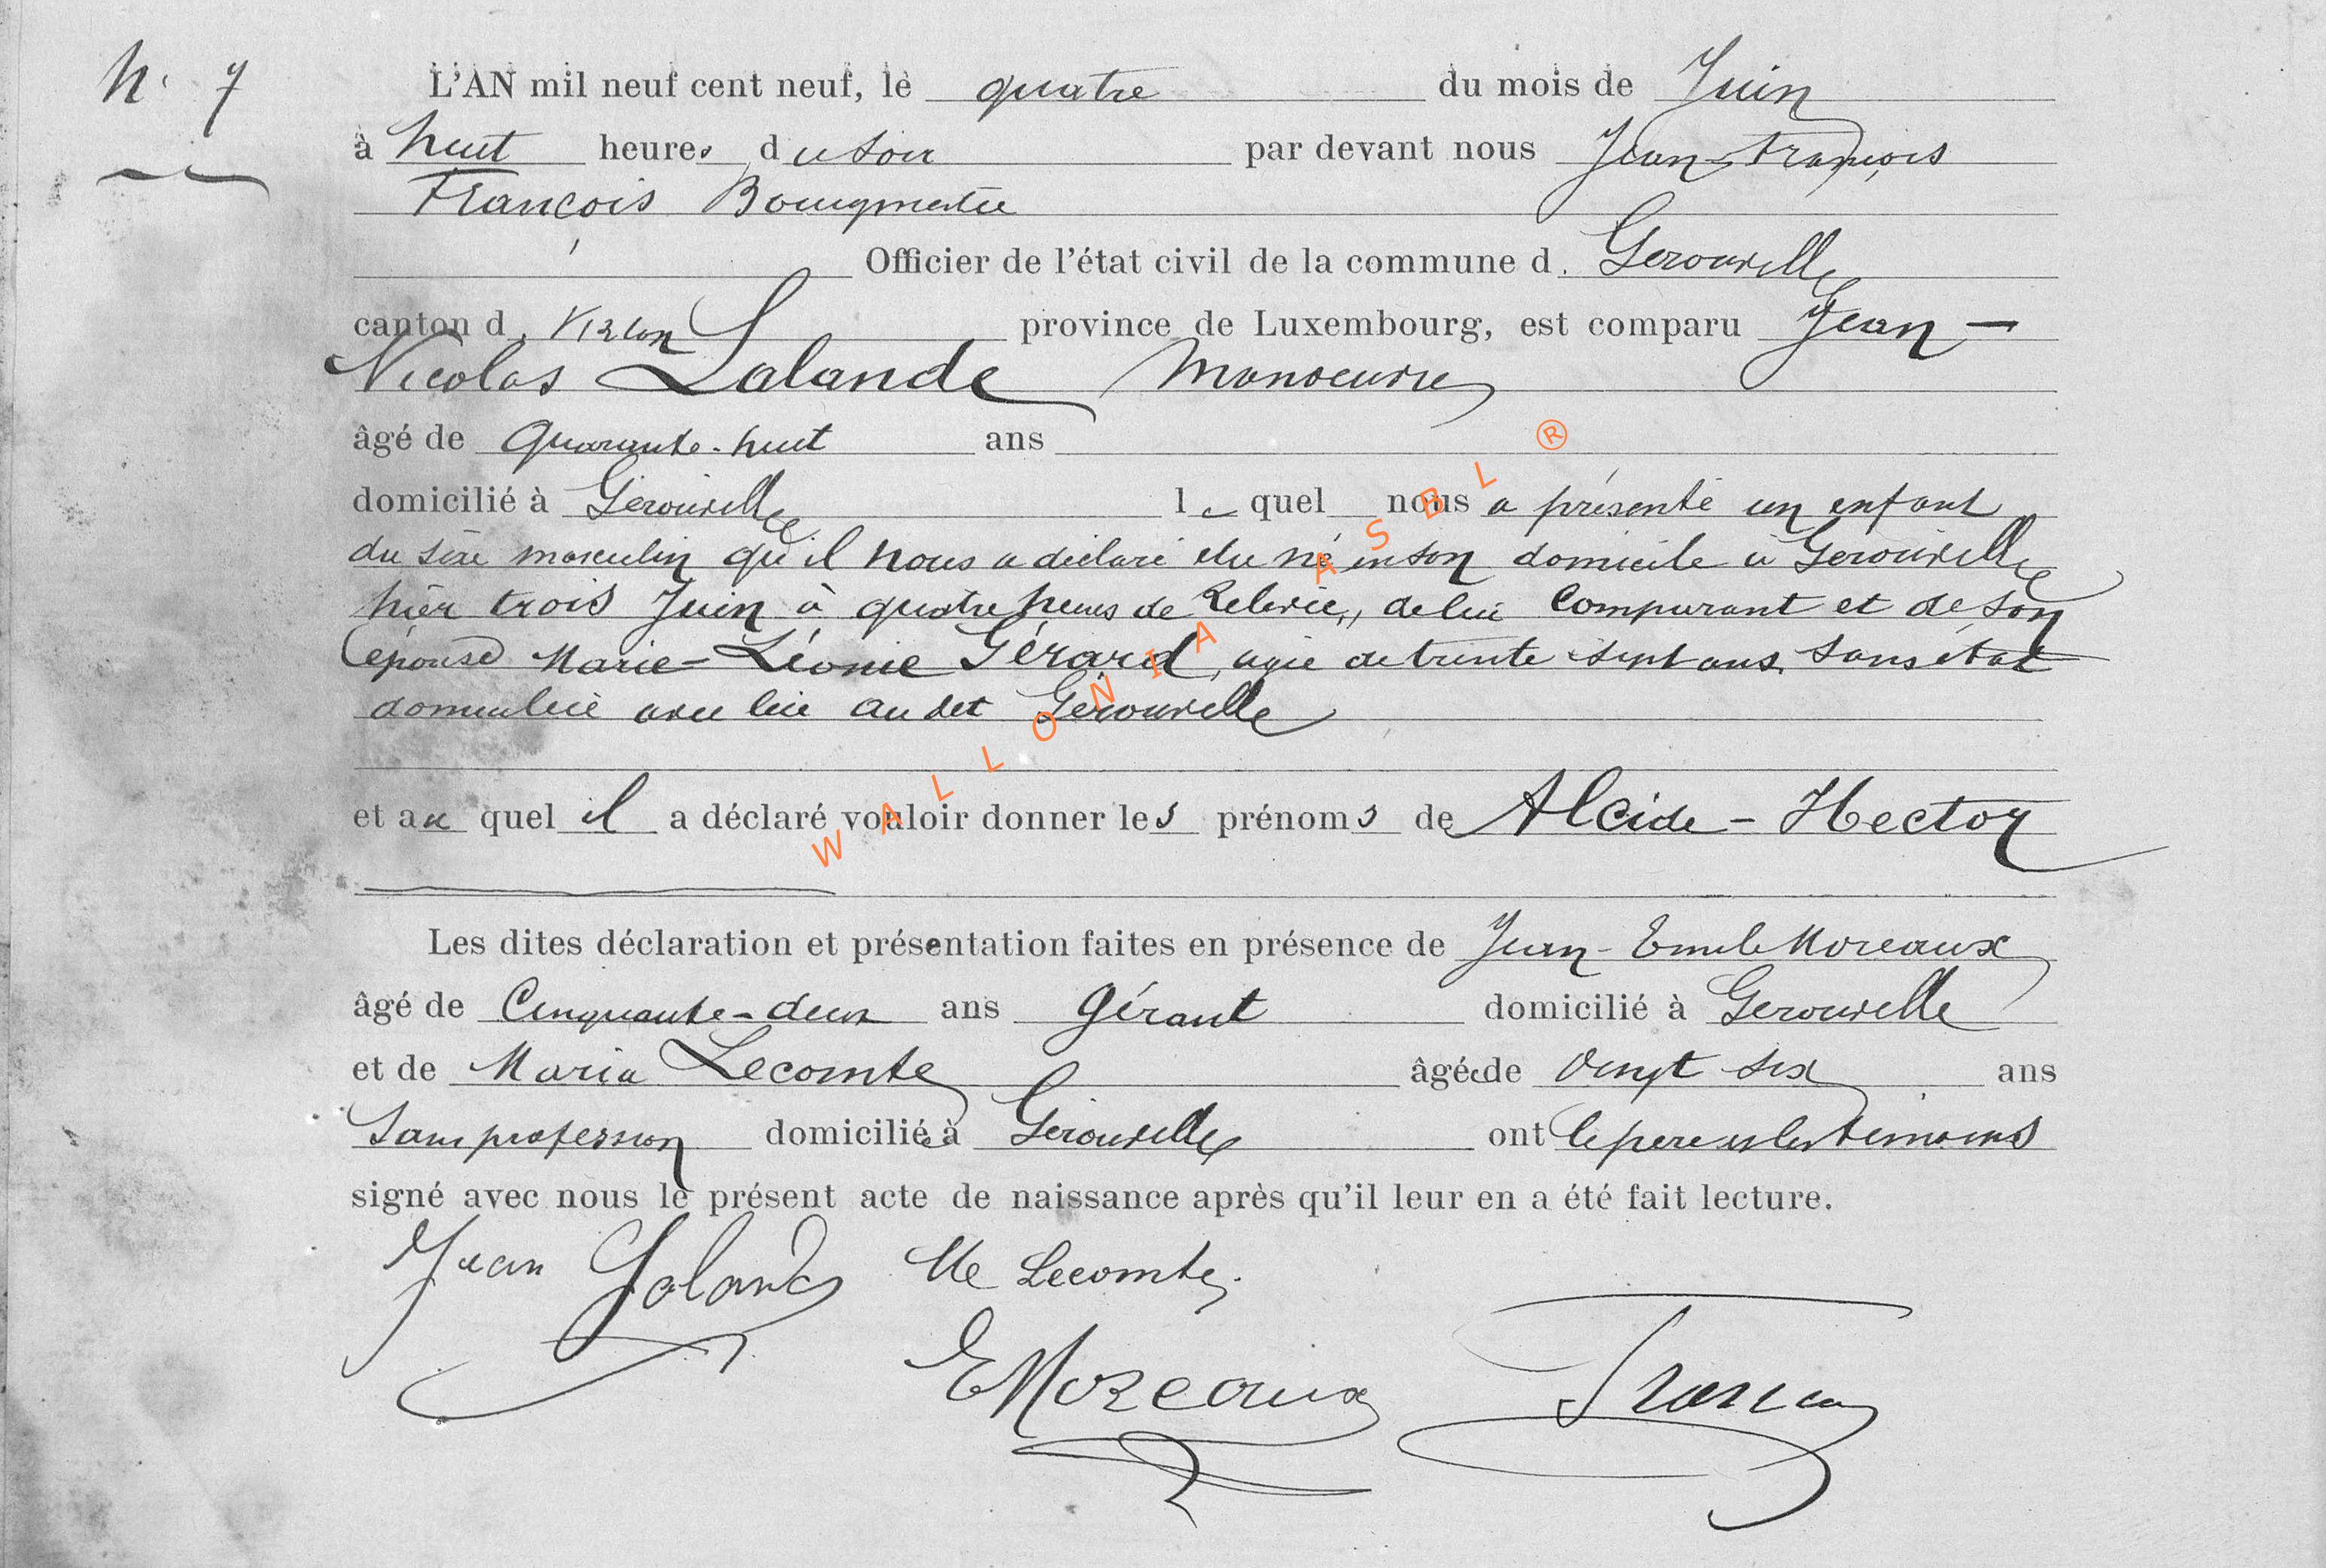 N. 7
L'AN mil neuf cent neuf, le quatre du mois de Juin
à huit heures du soir par devant nous Jean-François
François Bourgmestre
Officier de l'état civil de la commune d. Gerouville
canton d. Virton province de Luxembourg, est comparu Jean-
Nicolas Lalande Manoeuvre
âgé de quarante-huit ans
domicilié à Gérouville le quel nous a présenté un enfant
du sexe masculin qu'il nous a déclaré être né en son domicile à Gerouville
hier trois Juin à quatre heures de Relevée, de lui Comparant et de son
épouse Marie-Léonie Gérard, agée de trente sept ans, sans état
domiciliée avec lui au dit Gérouville
et au quel il a déclaré vouloir donner les prénoms de Alcide-Hector
Les dites déclaration et présentation faites en présence de Jean-Emile Moreaux
âgé de Cinquante-deux ans Gérant domicilié à Gerouville
et de Maria Lecomte âgée de vingt six ans
Sans profession domiciliée à Gérouville ont le père et les témoins
signé avec nous le présent acte de naissance après qu'il leur en a été fait lecture.
Jean Lalande Me Lecomte.
EMoreaux
WALLONIA ASBL ®